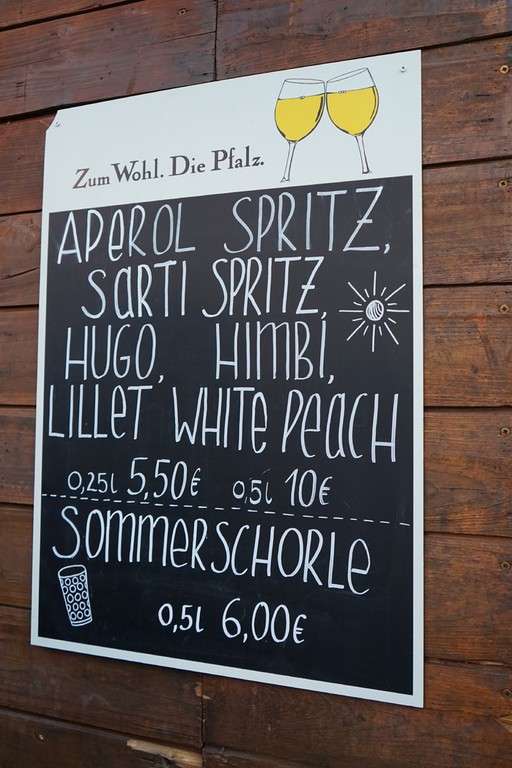 Zum Wohl. Die Pfalz.
APEROL SPRITZ,
SARTI SPRITZ,
HUGO, HIMBI,
LILLET WHITE PEACH
0,25l 5,50€ 0,5l 10€
SOMMERSCHORLE
0,5l 6,00€